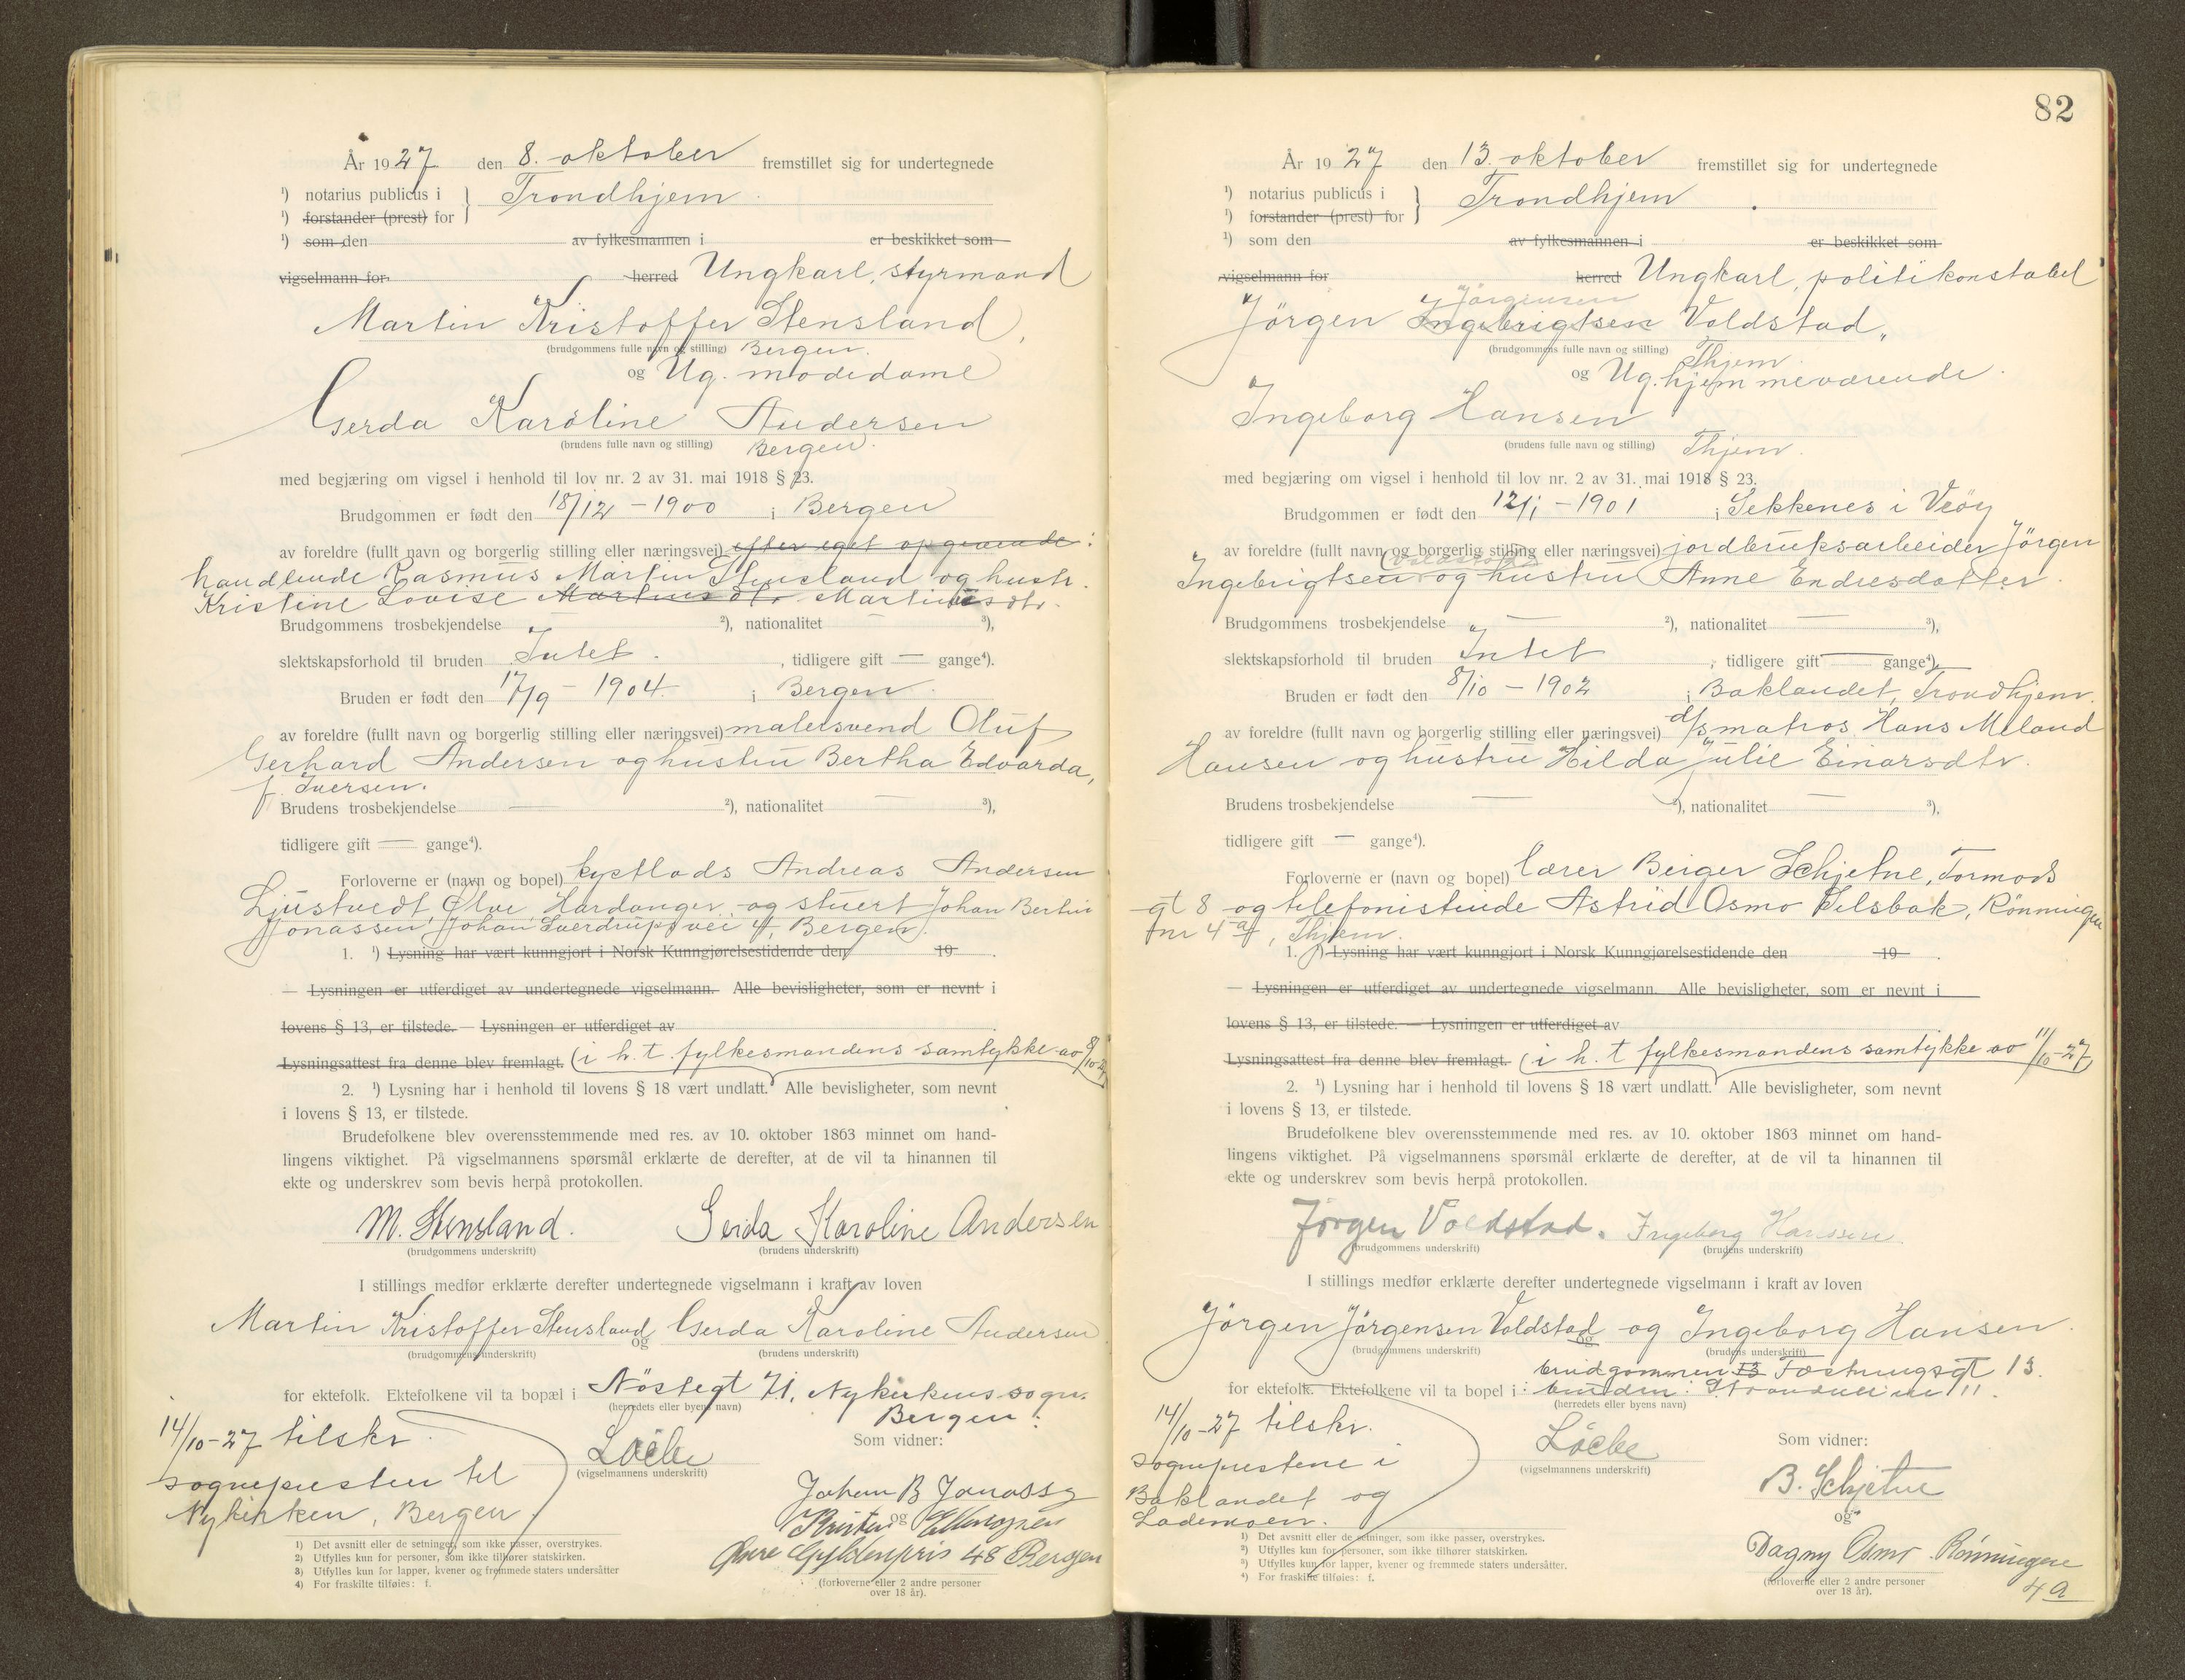 År 1927 den 8. oktober fremstillet sig for undertegnede
¹) notarius publicus i } Trondhjem
¹) forstander (prest) for
¹) som den av fylkesmannen i er beskikket som
vigselmann for herred Ungkarl, styrmand
Martin Kristoffer Stensland,
(brudgommens fulle navn og stilling) Bergen.
og Ug. modedame
Gerda Karoline Andersen
(brudens fulle navn og stilling) Bergen.
med begjæring om vigsel i henhold til lov nr. 2 av 31. mai 1918 § 23.
Brudgommen er født den 18/12 - 1900 i Bergen
av foreldre (fullt navn og borgerlig stilling eller næringsvei) efter eget opgivende:
handlende Rasmus Martin Stensland og hustr.
Kristine Lovise Martinusdtr.
Brudgommens trosbekjendelse ²), nationalitet ³),
slektskapsforhold til bruden Intet. , tidligere gift — gange⁴).
Bruden er født den 17/9 - 1904 i Bergen.
av foreldre (fullt navn og borgerlig stilling eller næringsvei) malersvend Oluf
Gerhard Andersen og hustru Bertha Edvarda,
f. Iversen.
Brudens trosbekjendelse — ²), nationalitet — ³),
tidligere gift — gange⁴).
Forloverne er (navn og bopel) kystlods Andreas Andersen
Ljustvedt, Ølve, Hardanger, og stuert Johan Bertin
Jonassen, Johan Sverdrups vei 4, Bergen.
1. ¹) Lysning har vært kunngjort i Norsk Kunngjørelsestidende den 19 .
— Lysningen er utferdiget av undertegnede vigselmann. Alle bevisligheter, som er nevnt i
lovens § 13, er tilstede. — Lysningen er utferdiget av
Lysningsattest fra denne blev fremlagt. (i h. t. fylkesmandens samtykke av 8/10-27)
2. ¹) Lysning har i henhold til lovens § 18 vært undlatt. Alle bevisligheter, som nevnt
i lovens § 13, er tilstede.
Brudefolkene blev overensstemmende med res. av 10. oktober 1863 minnet om hand-
lingens viktighet. På vigselmannens spørsmål erklærte de derefter, at de vil ta hinannen til
ekte og underskrev som bevis herpå protokollen.
M. Stensland. Gerda Karoline Andersen
(brudgommens underskrift) (brudens underskrift)
I stillings medfør erklærte derefter undertegnede vigselmann i kraft av loven
Martin Kristoffer Stensland og Gerda Karoline Andersen
(brudgommens underskrift) (brudens underskrift)
for ektefolk. Ektefolkene vil ta bopæl i Nøstegt 71, Nykirkens sogn.
(herredets eller byens navn) Bergen.
14/10-27 tilskr.
sognepresten til
Nykirken, Bergen
(vigselmannens underskrift)
Som vidner:
Johan B Jonassen
og
Øvre Gyldenpris 48 Bergen
(forloverne eller 2 andre personer
over 18 år).
1) Det avsnitt eller de setninger, som ikke passer, overstrykes.
2) Utfylles kun for personer, som ikke tilhører statskirken.
3) Utfylles kun for lapper, kvener og fremmede staters undersåtter
4) For fraskilte tilføies: f.
82
År 1927 den 13. oktober fremstillet sig for undertegnede
¹) notarius publicus i } Trondhjem
¹) forstander (prest) for
¹) som den av fylkesmannen i er beskikket som
vigselmann for herred Ungkarl, politikonstabel
Jörgensen
Jörgen Ingebrigtsen Voldstad,
(brudgommens fulle navn og stilling) Thjem.
og Ug. hjemmeværende.
Ingeborg Hansen
(brudens fulle navn og stilling) Thjem.
med begjæring om vigsel i henhold til lov nr. 2 av 31. mai 1918 § 23.
Brudgommen er født den 12/1 - 1901 i Sekkenes i Veöy
av foreldre (fullt navn og borgerlig stilling eller næringsvei) jordbruksarbeider Jörgen
(Voldstad)
Ingebrigtsen og hustru Anne Endresdatter.
Brudgommens trosbekjendelse — ²), nationalitet — ³),
slektskapsforhold til bruden Intet , tidligere gift — gange⁴).
Bruden er født den 8/10 - 1902 i Baklandet, Trondhjem.
av foreldre (fullt navn og borgerlig stilling eller næringsvei) d/s matros Hans Meland
Hansen og hustru Hilda Julie Einarsdtr.
Brudens trosbekjendelse — ²), nationalitet — ³),
tidligere gift — gange⁴).
Forloverne er (navn og bopel) lærer Berger Schjetne, Tormods
gt 8 og telefonistinde Astrid Osmo Selsbak, Rönningen
nr 4 a, Thjem.
1. ¹) Lysning har vært kunngjort i Norsk Kunngjørelsestidende den 19 .
— Lysningen er utferdiget av undertegnede vigselmann. Alle bevisligheter, som er nevnt i
lovens § 13, er tilstede. — Lysningen er utferdiget av
Lysningsattest fra denne blev fremlagt. (i h. t fylkesmandens samtykke av 11/10-27)
2. ¹) Lysning har i henhold til lovens § 18 vært undlatt. Alle bevisligheter, som nevnt
i lovens § 13, er tilstede.
Brudefolkene blev overensstemmende med res. av 10. oktober 1863 minnet om hand-
lingens viktighet. På vigselmannens spørsmål erklærte de derefter, at de vil ta hinannen til
ekte og underskrev som bevis herpå protokollen.
Jörgen Voldstad. Ingeborg Hanssen.
(brudgommens underskrift) (brudens underskrift)
I stillings medfør erklærte derefter undertegnede vigselmann i kraft av loven
Jörgen Jörgensen Voldstad og Ingeborg Hansen.
(brudgommens underskrift) og (brudens underskrift)
brudgommen Festningsgt 13.
for ektefolk. Ektefolkene vil ta bopel i: bruden: 11.
(herredets eller byens navn)
14/10-27 tilskr.
sogneprestene i
Baklandet og
Lademoen.
(vigselmannens underskrift)
Som vidner:
B. Schjetne
og
Dagny Osmo. Rönningen
4a
(forloverne eller 2 andre personer
over 18 år).
¹) Det avsnitt eller de setninger, som ikke passer, overstrykes.
²) Utfylles kun for personer, som ikke tilhører statskirken.
³) Utfylles kun for lapper, kvener og fremmede staters undersåtter.
⁴) For fraskilte tilføies: f.